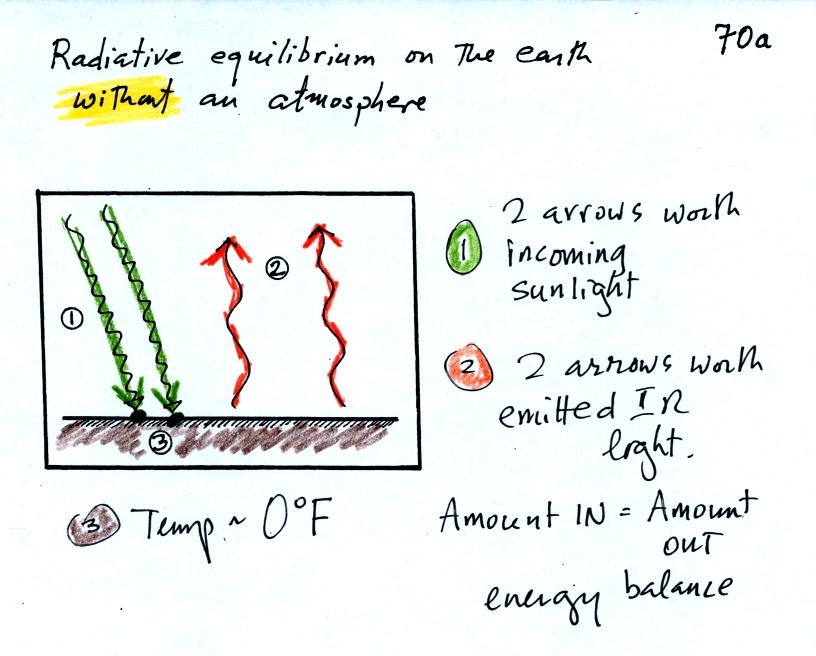 Radiative equilibrium on the earth
70a
without an atmosphere
1
2
3
1
2 arrows worth
incoming
sunlight
2
2 arrows worth
emitted IR
light.
3 Temp. ~ 0°F
Amount IN = Amount
OUT
energy balance